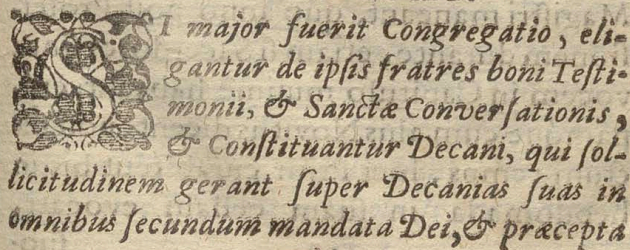 SI major fuerit Congregatio, eli-
gantur de ipſis fratres boni Teſti-
monii, & Sanctæ Converſationis,
& Conſtituantur Decani, qui ſol-
licitudinem gerant ſuper Decanias ſuas in
omnibus ſecundum mandata Dei, & præcepta